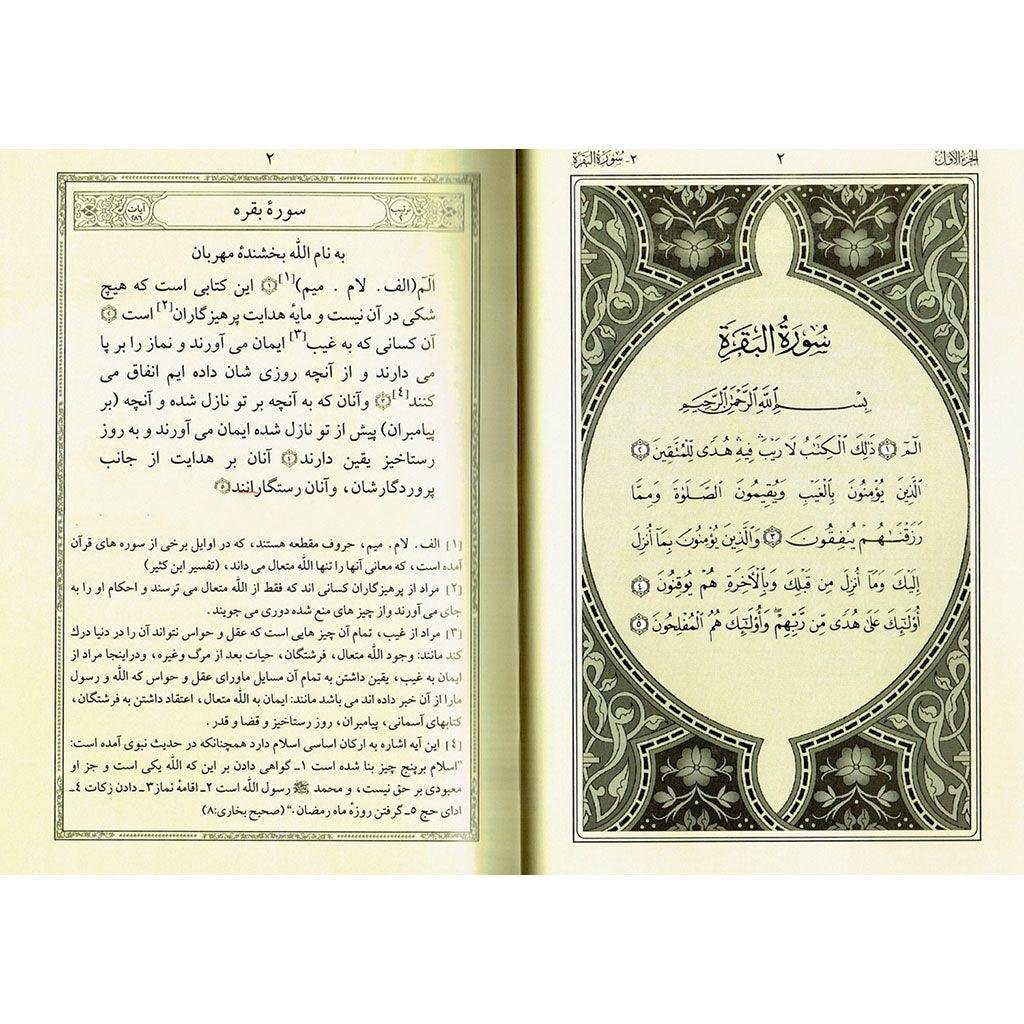 الجزء الأول
٢
٢- سورة البقرة
سُورَةُ البَقَرَةِ
بِسْمِ ٱللَّهِ ٱلرَّحْمَٰنِ ٱلرَّحِيمِ
الٓمٓ ١ ذَٰلِكَ ٱلْكِتَٰبُ لَا رَيْبَ ۛ فِيهِ ۛ هُدًى لِّلْمُتَّقِينَ ٢
ٱلَّذِينَ يُؤْمِنُونَ بِٱلْغَيْبِ وَيُقِيمُونَ ٱلصَّلَوٰةَ وَمِمَّا
رَزَقْنَٰهُمْ يُنفِقُونَ ٣ وَٱلَّذِينَ يُؤْمِنُونَ بِمَآ أُنزِلَ
إِلَيْكَ وَمَآ أُنزِلَ مِن قَبْلِكَ وَبِٱلْءَاخِرَةِ هُمْ يُوقِنُونَ ٤
أُو۟لَٰٓئِكَ عَلَىٰ هُدًى مِّن رَّبِّهِمْ ۖ وَأُو۟لَٰٓئِكَ هُمُ ٱلْمُفْلِحُونَ ٥
٢
ترتیب ٢
سورهٔ بقره
آیات ٢٨٦
به نام الله بخشندهٔ مهربان
آلٓمٓ(الف. لام . میم)[١] ١ این کتابی است که هیچ
شکی در آن نیست و مایهٔ هدایت پرهیزگاران[٢] است ٢
آن کسانی که به غیب[٣] ایمان می آورند و نماز را بر پا
می دارند و از آنچه روزی شان داده ایم انفاق می
کنند[٤] ٣ وآنان که به آنچه بر تو نازل شده و آنچه (بر
پیامبران) پیش از تو نازل شده ایمان می آورند و به روز
رستاخیز یقین دارند ٤ آنان بر هدایت از جانب
پروردگارشان، وآنان رستگارانند ٥
[١] الف. لام. میم، حروف مقطعه هستند، که در اوایل برخی از سوره های قرآن
آمده است، که معانی آنها را تنها الله متعال می داند، (تفسیر ابن کثیر)
[٢] مراد از پرهیزگاران کسانی اند که فقط از الله متعال می ترسند و احکام او را به
جای می آورند واز چیز های منع شده دوری می جویند.
[٣] مراد از غیب، تمام آن چیز هایی است که عقل و حواس نتواند آن را در دنیا درک
کند مانند: وجود الله متعال، فرشتگان، حیات بعد از مرگ وغیره، ودراینجا مراد از
ایمان به غیب، یقین داشتن به تمام آن مسایل ماورای عقل و حواس که الله و رسول
مارا از آن خبر داده اند می باشد مانند: ایمان به الله متعال، اعتقاد داشتن به فرشتگان،
کتابهای آسمانی، پیامبران، روز رستاخیز و قضا و قدر .
[٤] این آیه اشاره به ارکان اساسی اسلام دارد همچنانکه در حدیث نبوی آمده است:
"اسلام برپنج چیز بنا شده است ١ـ گواهی دادن بر این که الله یکی است و جز او
معبودی بر حق نیست، و محمد ﷺ رسول الله است ٢ـ اقامهٔ نماز ٣ـ دادن زکات ٤ـ
ادای حج ٥ـ گرفتن روزهٔ ماه رمضان." (صحیح بخاری:٨)